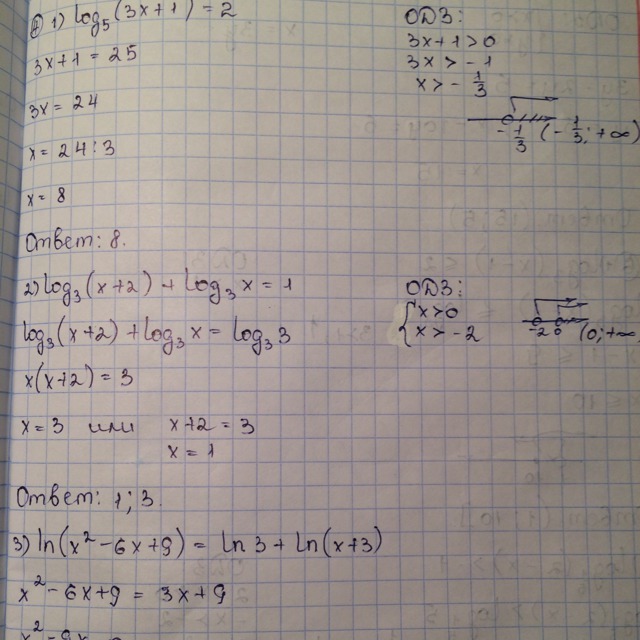 ② 1) log₅(3x+1) = 2
3x+1 = 25
3x = 24
x = 24:3
x = 8
Ответ: 8.
ОДЗ:
3x+1>0
3x > -1
x > - 1/3
- 1/3 (- 1/3; +∞)
2) log₃(x+2) + log₃ x = 1
log₃(x+2) + log₃ x = log₃ 3
x(x+2) = 3
x = 3 или x+2 = 3
x = 1
Ответ: 1; 3.
ОДЗ:
{ x>0
x > -2
-2 0 (0; +∞
3) ln(x² - 6x+9) = ln 3 + ln(x+3)
x² - 6x+9 = 3x+9